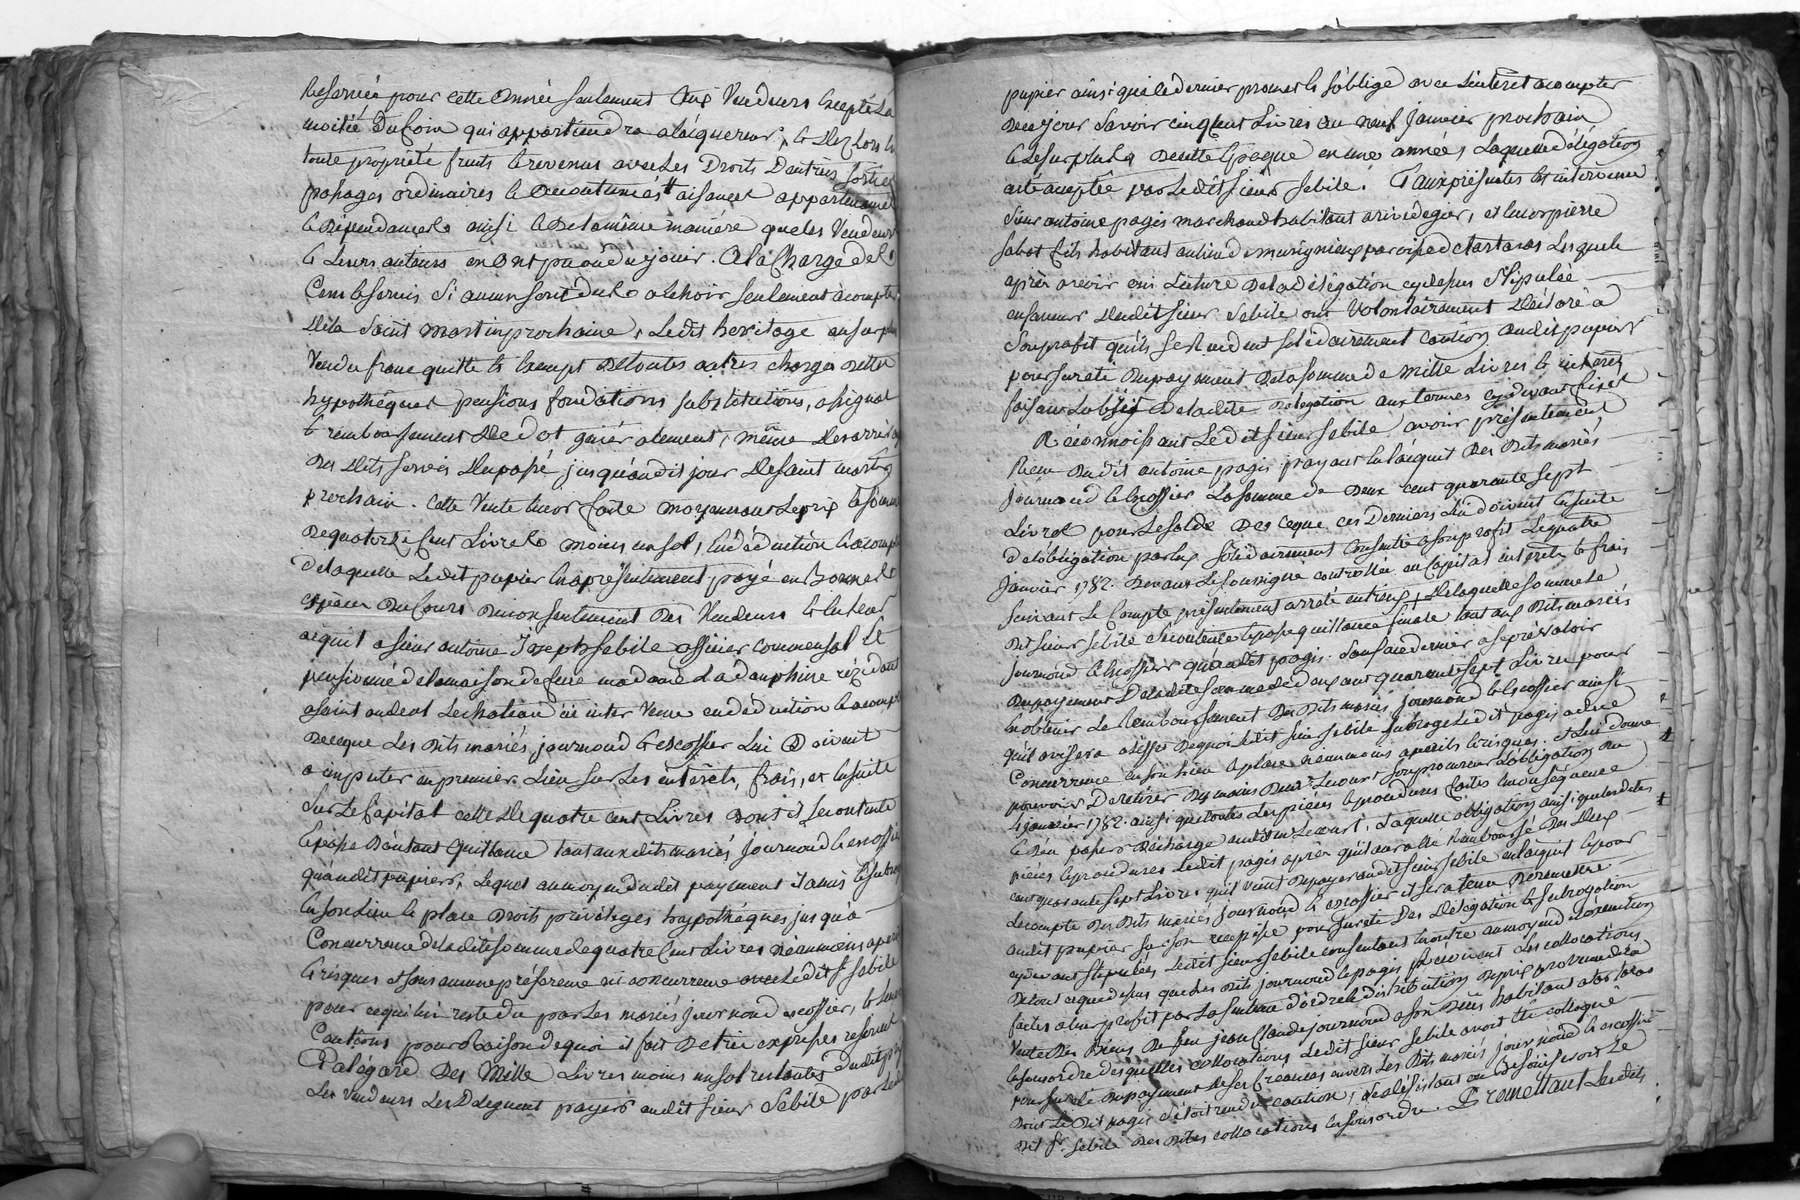 Reservée pour cette année seulement aux Vendeurs Excepté La
moitié Du foin qui appartiendra a lacquereur, & Des Lors le
toute propriété fruits & revenus avec Les Droits Dentrées sorties
passages ordinaires & accoutumés aisances appartenances
& Dependances ainsi & De la même manière que les Vendeurs
& Leurs auteurs en ont pu ou du jouir. a la Charge de
Cens & servis Si aucun sont dus a echoir seulement à compter
De la Saint martin prochaine, Ledit heritage au surplus
Vendu franc quitte & Exempt De toutes autres charges dettes
hypothéques pensions fondations substitutions, assignat
& remboursement De dot généralement, même Des arrérages
Des Dits servis Du passé jusqu'audit jour De saint martin
prochain. Cette Vente Encor faite moyennant Le prix & somme
De quatorze Cent Livres moins un sol, En déduction & acompte
De laquelle Ledit papier En a présentement payé en Bonnes
espèces Du Cours Du consentement Des Vendeurs & En leur
acquit a sieur antoine Joseph Sebile officier Commensal &
pensionné de la maison de feue madame La dauphine résidant
a saint andeol Le chateau ici inter Venu en déduction & acompte
De ceque Les Dits mariés journoud & escoffier Lui Doivent
a imputer en premier Lieu sur Les intérêts, frais, et Ensuite
Sur Le Capital celle De quatre cent Livres Dont il se contente
& passe D'autant Quittance tant aux dits mariés journoud & escoffier
qu'audit papier, Lequel au moyen Dudit payement il a mis & subrogé
En son Lieu & place Droits priviléges hypothéques jusqu'a
Concurrence de la dite somme de quatre Cent Livres Néanmoins a perils
& risques & sans aucune préférence ni concurrence avec Ledit Sr Sebile
pour ce qui lui reste du par Les mariés journoud escoffier, & Leurs
Cautions pour Raison de quoi il fait Dettes expresses reserves
& a légard Des Mille Livres moins un sol restantes Dudit prix
Les Vendeurs Les Deleguent payer audit sieur Sebile par Ledit
papier ainsi que ce dernier promet & s'oblige avec L'interêt acompter
De ce jour Savoir cinq cent Livres au neuf Janvier prochain
& Le surplus De cette Epoque en une année, Laquelle délégation
a été acceptée par Ledit sieur Sebile. & aux présentes Est intervenu
Sieur antoine pagis marchand habitant a rivedegier, et Encor pierre
Sabot fils habitant au lieu de marignieux paroisse de chartaras Lesquels
après avoir oui Lecture De la délégation cy dessus Stipulée
en faveur Dudit sieur Sebile ont Volontairement Déclaré a
Son profit qu'ils se Rendent solidairement Caution dudit papier
pour sureté Du payement De la somme De Mille Livres & intérêts
faisant Lobjet De la dite Delegation aux termes cy devant fixés
Reconnoissant Ledit sieur Sebile avoir présentement
Recu Dudit antoine pagis payant En l'acquit Des Dits mariés
journoud & Escoffier La somme de Deux cent quarante sept
Livres pour Le solde De ceque ces Derniers Lui doivent Ensuite
De l'obligation par Eux solidairement Consentie a son profit Le quatre
Janvier 1782. Devant Le soussigné controllée en Capital intérêts & frais
Suivant Le Compte présentement arrêté entreux, De laquelle somme Le
Dit sieur Sebile Se contente & passe quittance finale tant aux Dits mariés
journoud & Escoffier qu'audit pagis. Sauf a ce dernier a se prévaloir
Du payement De la dite somme de deux cent quarante sept Livres pour
En obtenir Le Remboursement Des Dits mariés journoud & Escoffier ainsi
qu'il avisera a l'effet De quoi Ledit sieur Sebile subroge Ledit pagis a due
Concurrence en son Lieu & place néanmoins a perils & risques. et Lui donne
pouvoir De retirer Des mains De Me Lecourt son procureur L'obligation Du
4 janvier 1782. ainsi que toutes Les pièces & procédures faites En conséquence
& D'en passer Décharge audit Me Lecourt, Laquelle obligation ainsi que les dites
pièces & procédures Ledit pagis après qu'il aura été Remboursé Des Deux
cent quarante sept Livres qu'il vient De payer audit sieur Sebile en l'acquit & pour
Le compte Des Dits mariés journoud & escoffier il sera tenu De remettre
audit papier sur son recepissé pour sureté Des Delegation & Subrogation
cy devant stipulées, Ledit sieur Sebile consentant En outre au moyen & Exécution
De tout ceque dessus que Les Dits journoud & pagis recoivent Les collocations
faites a leur profit par La sentence d'ordre & distribution Du prix provenu de la
Vente Des Biens De feu jean Claude journoud a son Déces habitant a
& sous ordre desquelles collocations Ledit sieur Sebile avoit été colloqué
pour sureté Du payement De ses Creances envers Les Dits mariés journoud & escoffier
Dont Le Dit pagis s'étoit rendu caution, Se desistant au Besoin Le
Dit Sr Sebile Des Dites collocations En sous ordre. Promettant Lesdits